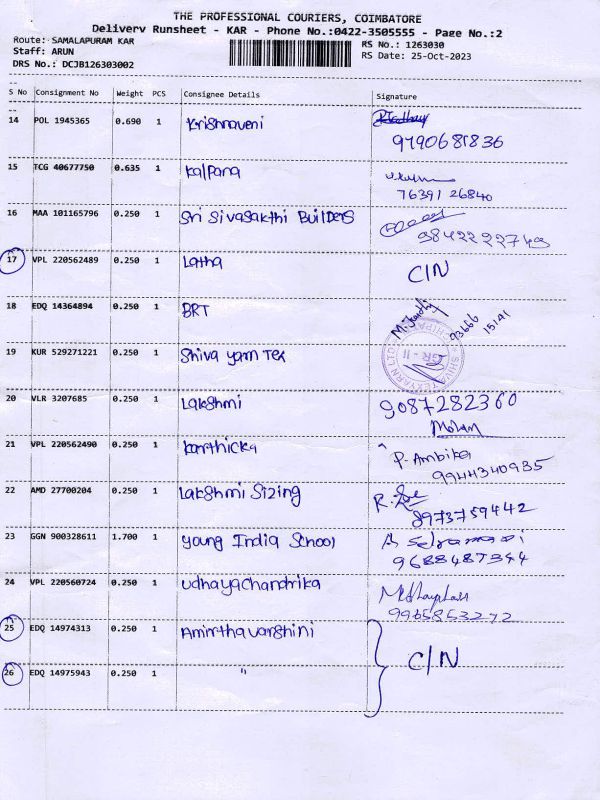 THE PROFESSIONAL COURIERS, COIMBATORE
Delivery Runsheet - KAR - Phone No.:0422-3505555 - Page No.:2
Route: SAMALAPURAM KAR
RS No.: 1263030
Staff: ARUN
RS Date: 25-Oct-2023
DRS No.: DCJB126303002
S No Consignment No Weight PCS Consignee Details Signature
14 POL 1945365 0.690 1 Krishnaveni
9790681836
15 TCG 40677750 0.635 1 Kalpana
76391 26840
16 MAA 101165796 0.250 1 Sri Sivasakthi Builders
9842222749
17 VPL 220562489 0.250 1 Latha C/N
18 EDQ 14364894 0.250 1 BRT
93666 15141
19 KUR 529271221 0.250 1 Shiva yarn Tex
GR - II
20 VLR 3207685 0.250 1 Lakshmi 9087282360
Mohan
21 VPL 220562490 0.250 1 Karthicka P. Ambika
9944340935
22 AMD 27700204 0.250 1 Lakshmi Sizing
8973759442
23 GGN 900328611 1.700 1 young India School A Selvamani
9688487344
24 VPL 220560724 0.250 1 udhayachandrika
9965853272
25 EDQ 14974313 0.250 1 Amirthavarshini
C/N
26 EDQ 14975943 0.250 1 "